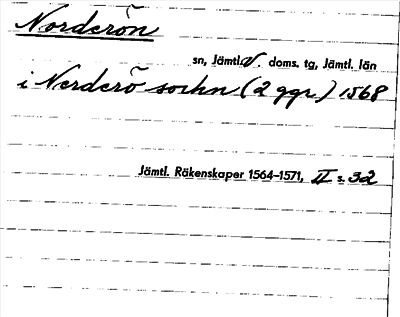 Norderön
sn, Jämtl. V. doms. tg, Jämtl. län
i Nerderö sochn (2 ggr.) 1568
Jämtl. Räkenskaper 1564-1571, II s. 32